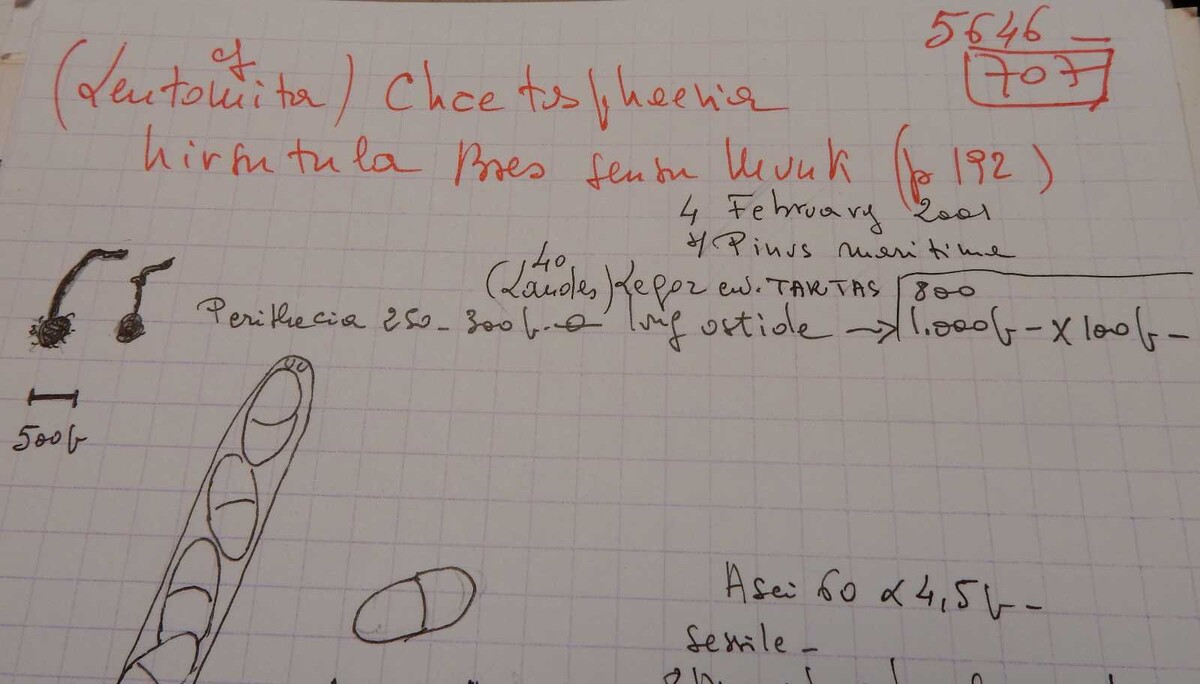 5646 –
707
cf
(Lentomita) Chaetosphaeria
hirsutula Bres sensu Munk (p 192)
4 February 2001
s/ Pinus maritima
40
(Landes) Legor env. TARTAS
Perithecia 250 – 300µ – long ostiole → 800
1.000µ – x 100µ –
500µ
Asci 60 x 4,5µ –
sessile –